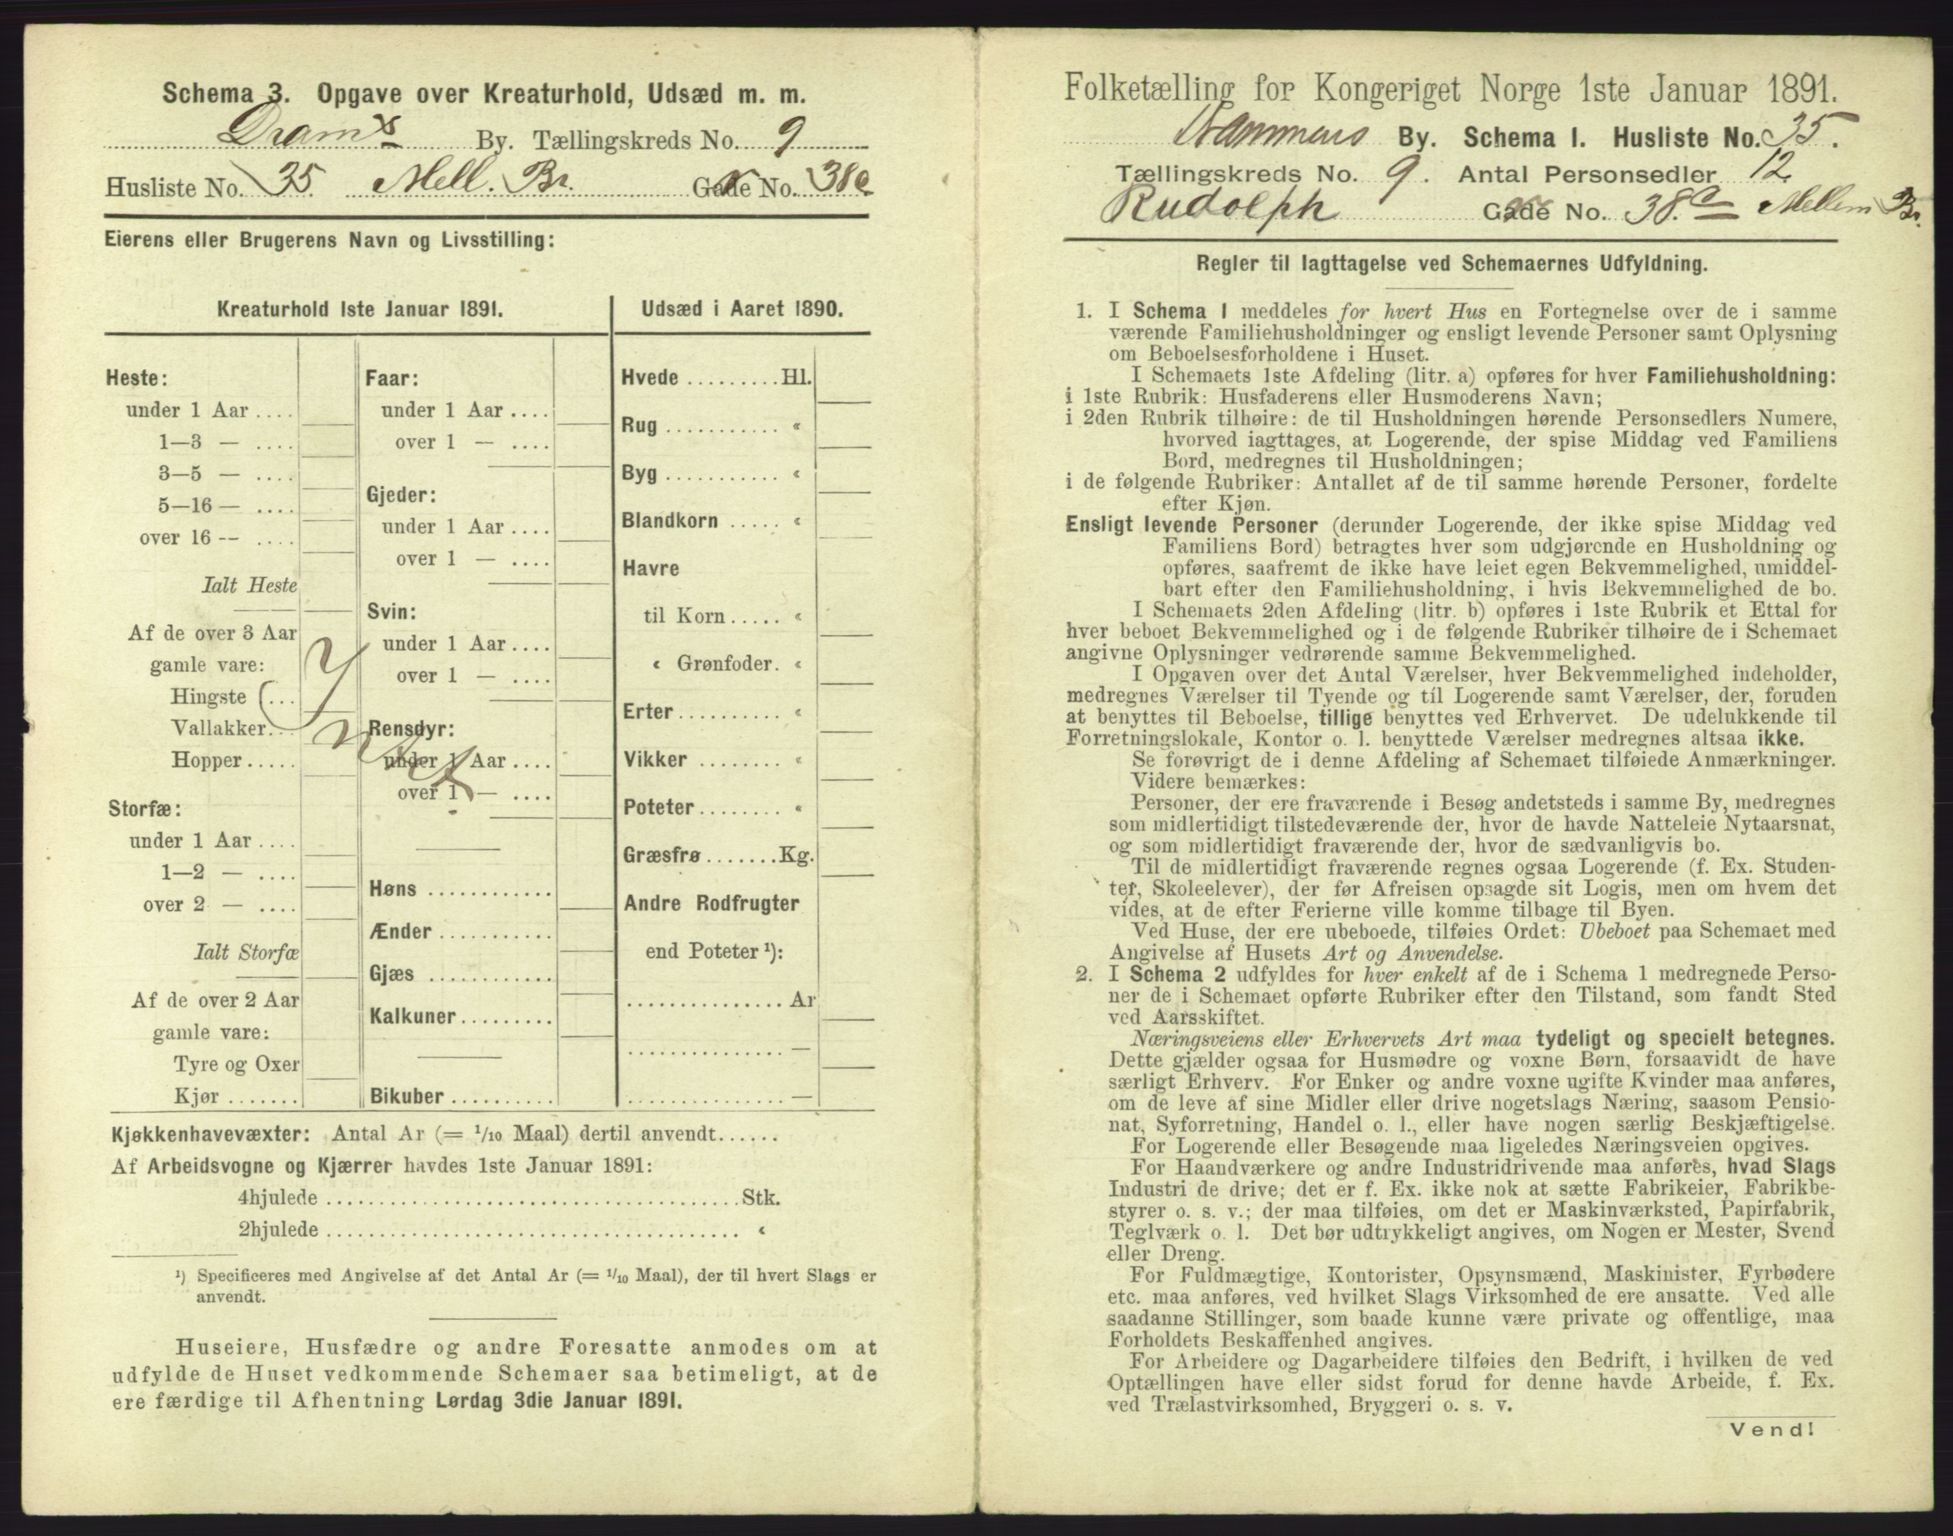 Schema 3. Opgave over Kreaturhold, Udsæd m. m.
Dramˢ By. Tællingskreds No. 9
Husliste No. 35 Mell. Br. Gade No. 38a
Eierens eller Brugerens Navn og Livsstilling:
Kreaturhold 1ste Januar 1891.
Heste:
under 1 Aar ....
1—3 — ....
3—5 — ....
5—16 — ....
over 16 -- ....
Ialt Heste
Af de over 3 Aar
gamle vare:
Hingste ....
Vallakker...
Hopper .....
Storfæ:
under 1 Aar ....
1—2 — ....
over 2 — ....
Ialt Storfæ
Af de over 2 Aar
gamle vare:
Tyre og Oxer
Kjør .......
Faar:
under 1 Aar ....
over 1 — ....
Gjeder:
under 1 Aar ....
over 1 — ....
Svin:
under 1 Aar ....
over 1 — ....
Rensdyr:
under 1 Aar ....
over 1 — ....
Høns ............
Ænder ...........
Gjæs ............
Kalkuner.........
Bikuber ..........
Udsæd i Aaret 1890.
Hvede .........Hl.
Rug ........... «
Byg ........... «
Blandkorn ..... «
Havre
til Korn ..... «
« Grønfoder. «
Erter.......... «
Vikker ........ «
Poteter........ «
Græsfrø.......Kg.
Andre Rodfrugter
end Poteter ¹):
............... Ar
............... —
............... —
Kjøkkenhavevæxter: Antal Ar (= 1/10 Maal) dertil anvendt......
Af Arbeidsvogne og Kjærrer havdes 1ste Januar 1891:
4hjulede ........................................Stk.
2hjulede ........................................ «
¹) Specificeres med Angivelse af det Antal Ar (= 1/10 Maal), der til hvert Slags er
anvendt.
Huseiere, Husfædre og andre Foresatte anmodes om at
udfylde de Huset vedkommende Schemaer saa betimeligt, at de
ere færdige til Afhentning Lørdag 3die Januar 1891.
Folketælling for Kongeriget Norge 1ste Januar 1891.
Drammens By. Schema I. Husliste No. 35.
Tællingskreds No. 9. Antal Personsedler 12
Rudolph Gade No. 38.a Mellem Br.
Regler til Iagttagelse ved Schemaernes Udfyldning.
1. I Schema I meddeles for hvert Hus en Fortegnelse over de i samme
værende Familiehusholdninger og ensligt levende Personer samt Oplysning
om Beboelsesforholdene i Huset.
I Schemaets 1ste Afdeling (litr. a) opføres for hver Familiehusholdning:
i 1ste Rubrik: Husfaderens eller Husmoderens Navn;
i 2den Rubrik tilhøire: de til Husholdningen hørende Personsedlers Numere,
hvorved iagttages, at Logerende, der spise Middag ved Familiens
Bord, medregnes til Husholdningen;
i de følgende Rubriker: Antallet af de til samme hørende Personer, fordelte
efter Kjøn.
Ensligt levende Personer (derunder Logerende, der ikke spise Middag ved
Familiens Bord) betragtes hver som udgjørende en Husholdning og
opføres, saafremt de ikke have leiet egen Bekvemmelighed, umiddel-
bart efter den Familiehusholdning, i hvis Bekvemmelighed de bo.
I Schemaets 2den Afdeling (litr. b) opføres i 1ste Rubrik et Ettal for
hver beboet Bekvemmelighed og i de følgende Rubriker tilhøire de i Schemaet
angivne Oplysninger vedrørende samme Bekvemmelighed.
I Opgaven over det Antal Værelser, hver Bekvemmelighed indeholder,
medregnes Værelser til Tyende og til Logerende samt Værelser, der, foruden
at benyttes til Beboelse, tillige benyttes ved Erhvervet. De udelukkende til
Forretningslokale, Kontor o. l. benyttede Værelser medregnes altsaa ikke.
Se forøvrigt de i denne Afdeling af Schemaet tilføiede Anmærkninger.
Videre bemærkes:
Personer, der ere fraværende i Besøg andetsteds i samme By, medregnes
som midlertidigt tilstedeværende der, hvor de havde Natteleie Nytaarsnat,
og som midlertidigt fraværende der, hvor de sædvanligvis bo.
Til de midlertidigt fraværende regnes ogsaa Logerende (f. Ex. Studen-
ter, Skoleelever), der før Afreisen opsagde sit Logis, men om hvem det
vides, at de efter Ferierne ville komme tilbage til Byen.
Ved Huse, der ere ubeboede, tilføies Ordet: Ubeboet paa Schemaet med
Angivelse af Husets Art og Anvendelse.
2. I Schema 2 udfyldes for hver enkelt af de i Schema 1 medregnede Perso-
ner de i Schemaet opførte Rubriker efter den Tilstand, som fandt Sted
ved Aarsskiftet.
Næringsveiens eller Erhvervets Art maa tydeligt og specielt betegnes.
Dette gjælder ogsaa for Husmødre og voxne Børn, forsaavidt de have
særligt Erhverv. For Enker og andre voxne ugifte Kvinder maa anføres,
om de leve af sine Midler eller drive nogetslags Næring, saasom Pensio-
nat, Syforretning, Handel o. l., eller have nogen særlig Beskjæftigelse.
For Logerende eller Besøgende maa ligeledes Næringsveien opgives.
For Haandværkere og andre Industridrivende maa anføres, hvad Slags
Industri de drive; det er f. Ex. ikke nok at sætte Fabrikeier, Fabrikbe-
styrer o. s. v.; der maa tilføies, om det er Maskinværksted, Papirfabrik,
Teglværk o. l. Det bør udtrykkeligt angives, om Nogen er Mester, Svend
eller Dreng.
For Fuldmægtige, Kontorister, Opsynsmænd, Maskinister, Fyrbødere
etc. maa anføres, ved hvilket Slags Virksomhed de ere ansatte. Ved alle
saadanne Stillinger, som baade kunne være private og offentlige, maa
Forholdets Beskaffenhed angives.
For Arbeidere og Dagarbeidere tilføies den Bedrift, i hvilken de ved
Optællingen have eller sidst forud for denne havde Arbeide, f. Ex.
ved Trælastvirksomhed, Bryggeri o. s. v.
Vend!